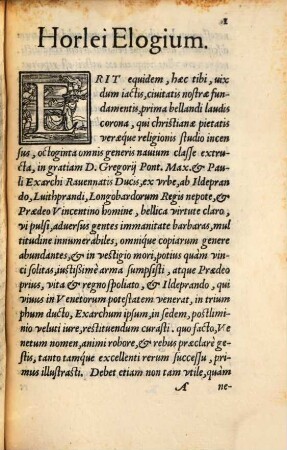 1
Horlei Elogium.
ERIT equidem, hæc tibi, uix
dum iactis, ciuitatis nostræ fun
damentis, prima bellandi laudis
corona, qui christianæ pietatis
veræque religionis studio incen
sus, octoginta omnis generis nauium classe extru
cta, in gratiam D. Gregorij Pont. Max. & Pau
li Exarchi Rauennatis Ducis, ex vrbe, ab Ildepran
do, Luithprandi, Longobardorum Regis nepote, &
Prædeo Vincentino homine, bellica virtute claro,
vi pulsi, aduersus gentes immanitate barbaras, mul
titudine innumerabiles, omnique copiarum genere
abundantes, & in vestigio mori, potius quàm vin
ci solitas, iustissimè arma sumpsisti, atque Prædeo
prius, vita & regno spoliato, & Ildeprando, qui
viuus in Venetorum potestatem venerat, in trium
phum ducto, Exarchum ipsum, in sedem, postlimi
nio veluti iure, restituendum curasti. quo facto, Ve
netum nomen, animi robore, & rebus præclarè ge
stis, tanto tamque excellenti rerum successu, pri
mus illustrasti. Debet etiam non tam vtile, quàm
A ne-